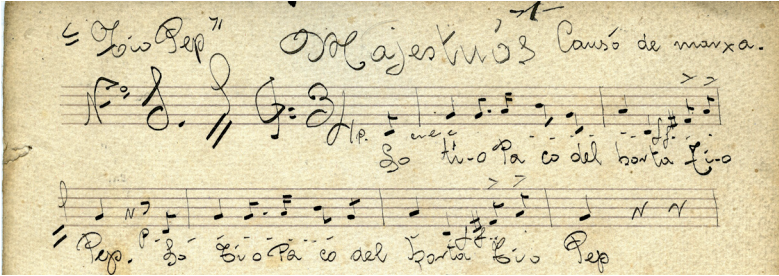 -1-
"Tio Pep" Majestuós Cansó de marxa.
p. cre c ff.
Lo ti-o Pa co del horta Ti-o
p. ff.
Pep. Lo Tio Pa co del horta Tio Pep